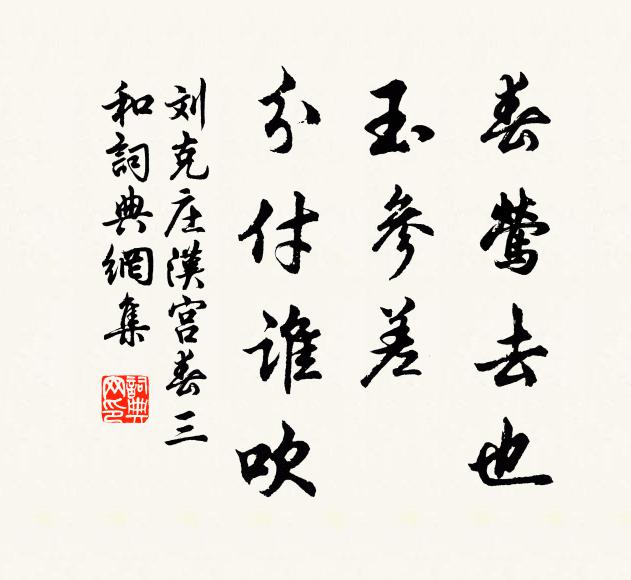 春莺去也
玉參差
分付谁吹
刘克庄漢宫春三
和詞典網集
詞典
网印